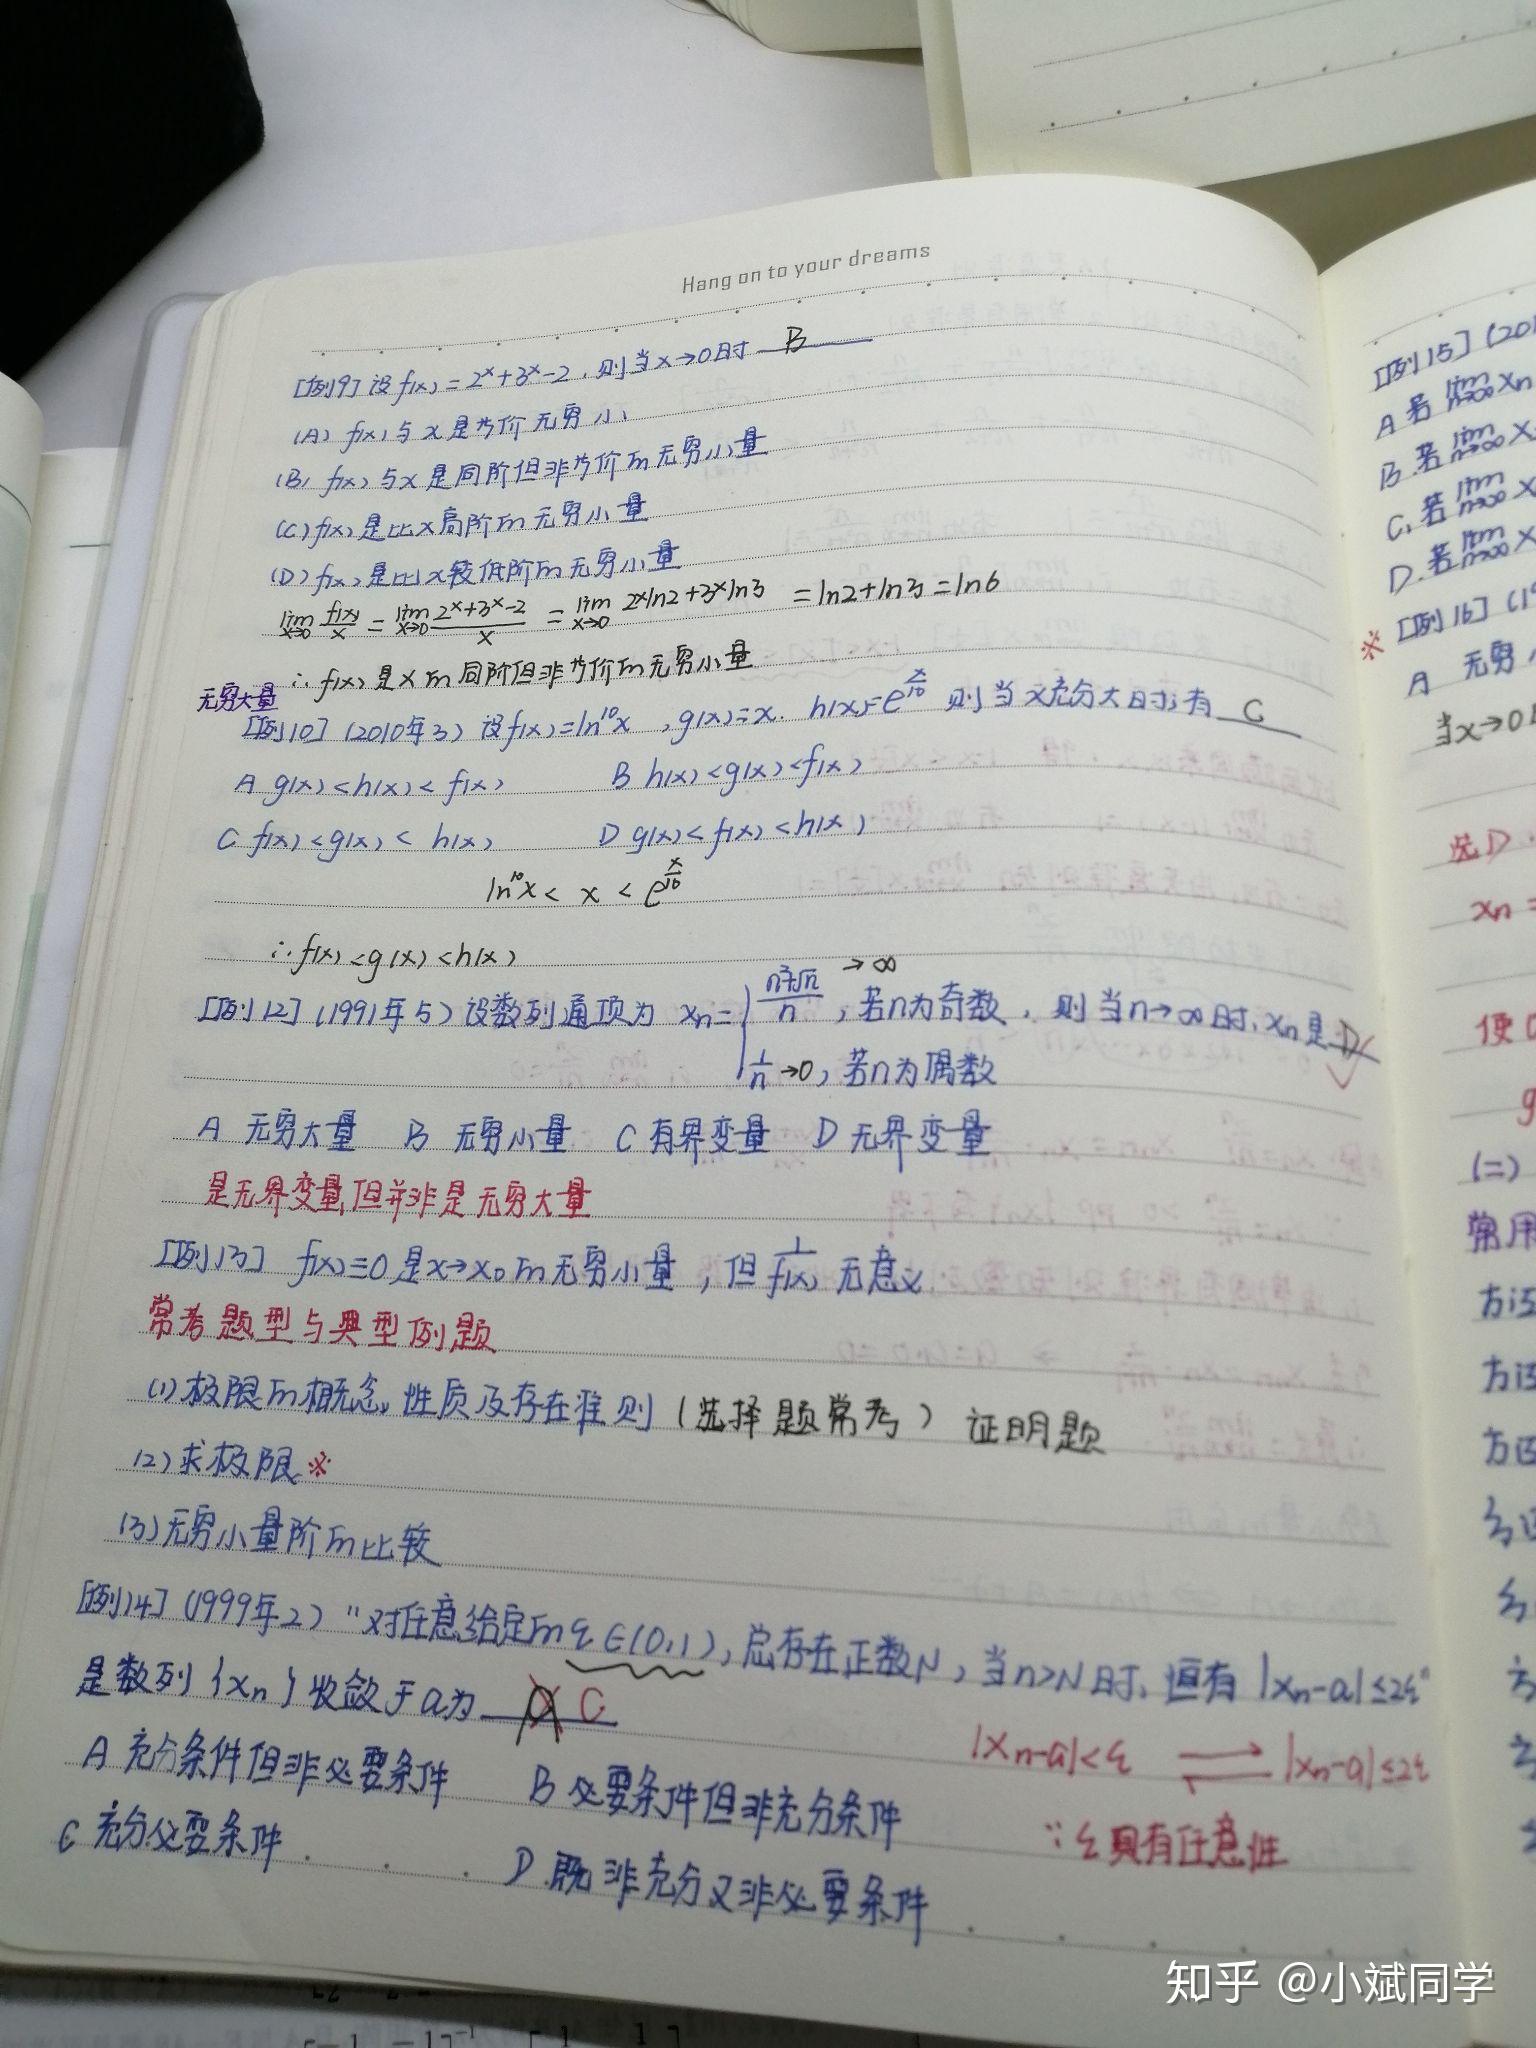 Hang on to your dreams
[例9] 设f(x) = 2^x+3^x-2, 则当x→0时 B
(A) f(x)与x是等价无穷小
(B) f(x)与x是同阶但非等价的无穷小量
(C) f(x)是比x高阶的无穷小量
(D) f(x)是比x较低阶的无穷小量
lim x→0 f(x)/x = lim x→0 (2^x+3^x-2)/x = lim x→0 2^x ln2+3^x ln3 = ln2+ln3 = ln6
∴ f(x)是x的同阶但非等价的无穷小量
无穷大量
[例10] (2010年3) 设f(x)=ln^10 x, g(x)=x. h(x)=e^(x/10) 则当x充分大时,有 C
A g(x)<h(x)<f(x) B h(x)<g(x)<f(x)
C f(x)<g(x)<h(x) D g(x)<f(x)<h(x)
ln^10 x < x < e^(x/10)
∴f(x)<g(x)<h(x)
[例12] (1991年5) 设数列通项为 xn={ (n²+√n)/n →∞, 若n为奇数, 则当n→∞时, xn是 D ✓
1/n →0, 若n为偶数
A 无穷大量 B 无穷小量 C 有界变量 D 无界变量
是无界变量,但并非是无穷大量
[例13] f(x)≡0是x→x0的无穷小量, 但 1/f(x) 无意义
常考题型与典型例题
(1)极限的概念,性质及存在准则(选择题常考) 证明题
(2)求极限※
(3)无穷小量阶的比较
[例14] (1999年2) "对任意给定的ε∈(0,1), 总存在正数N, 当n>N时, 恒有|xn-a|≤2ε"
是数列{xn}收敛于a为 C
A 充分条件但非必要条件 B 必要条件但非充分条件
C 充分必要条件 D 既非充分又非必要条件
|xn-a|<ε ⇌ |xn-a|≤2ε
∵ε具有任意性
[例15] (201
A 若 lim n→∞ xn
B. 若 lim n→∞ x
C. 若 lim n→∞ x
D. 若 lim n→∞ x
※ [例16] (19
A 无穷
当x→0
选D
xn =
便
g
(二)
常用
方法
知乎 @小斌同学